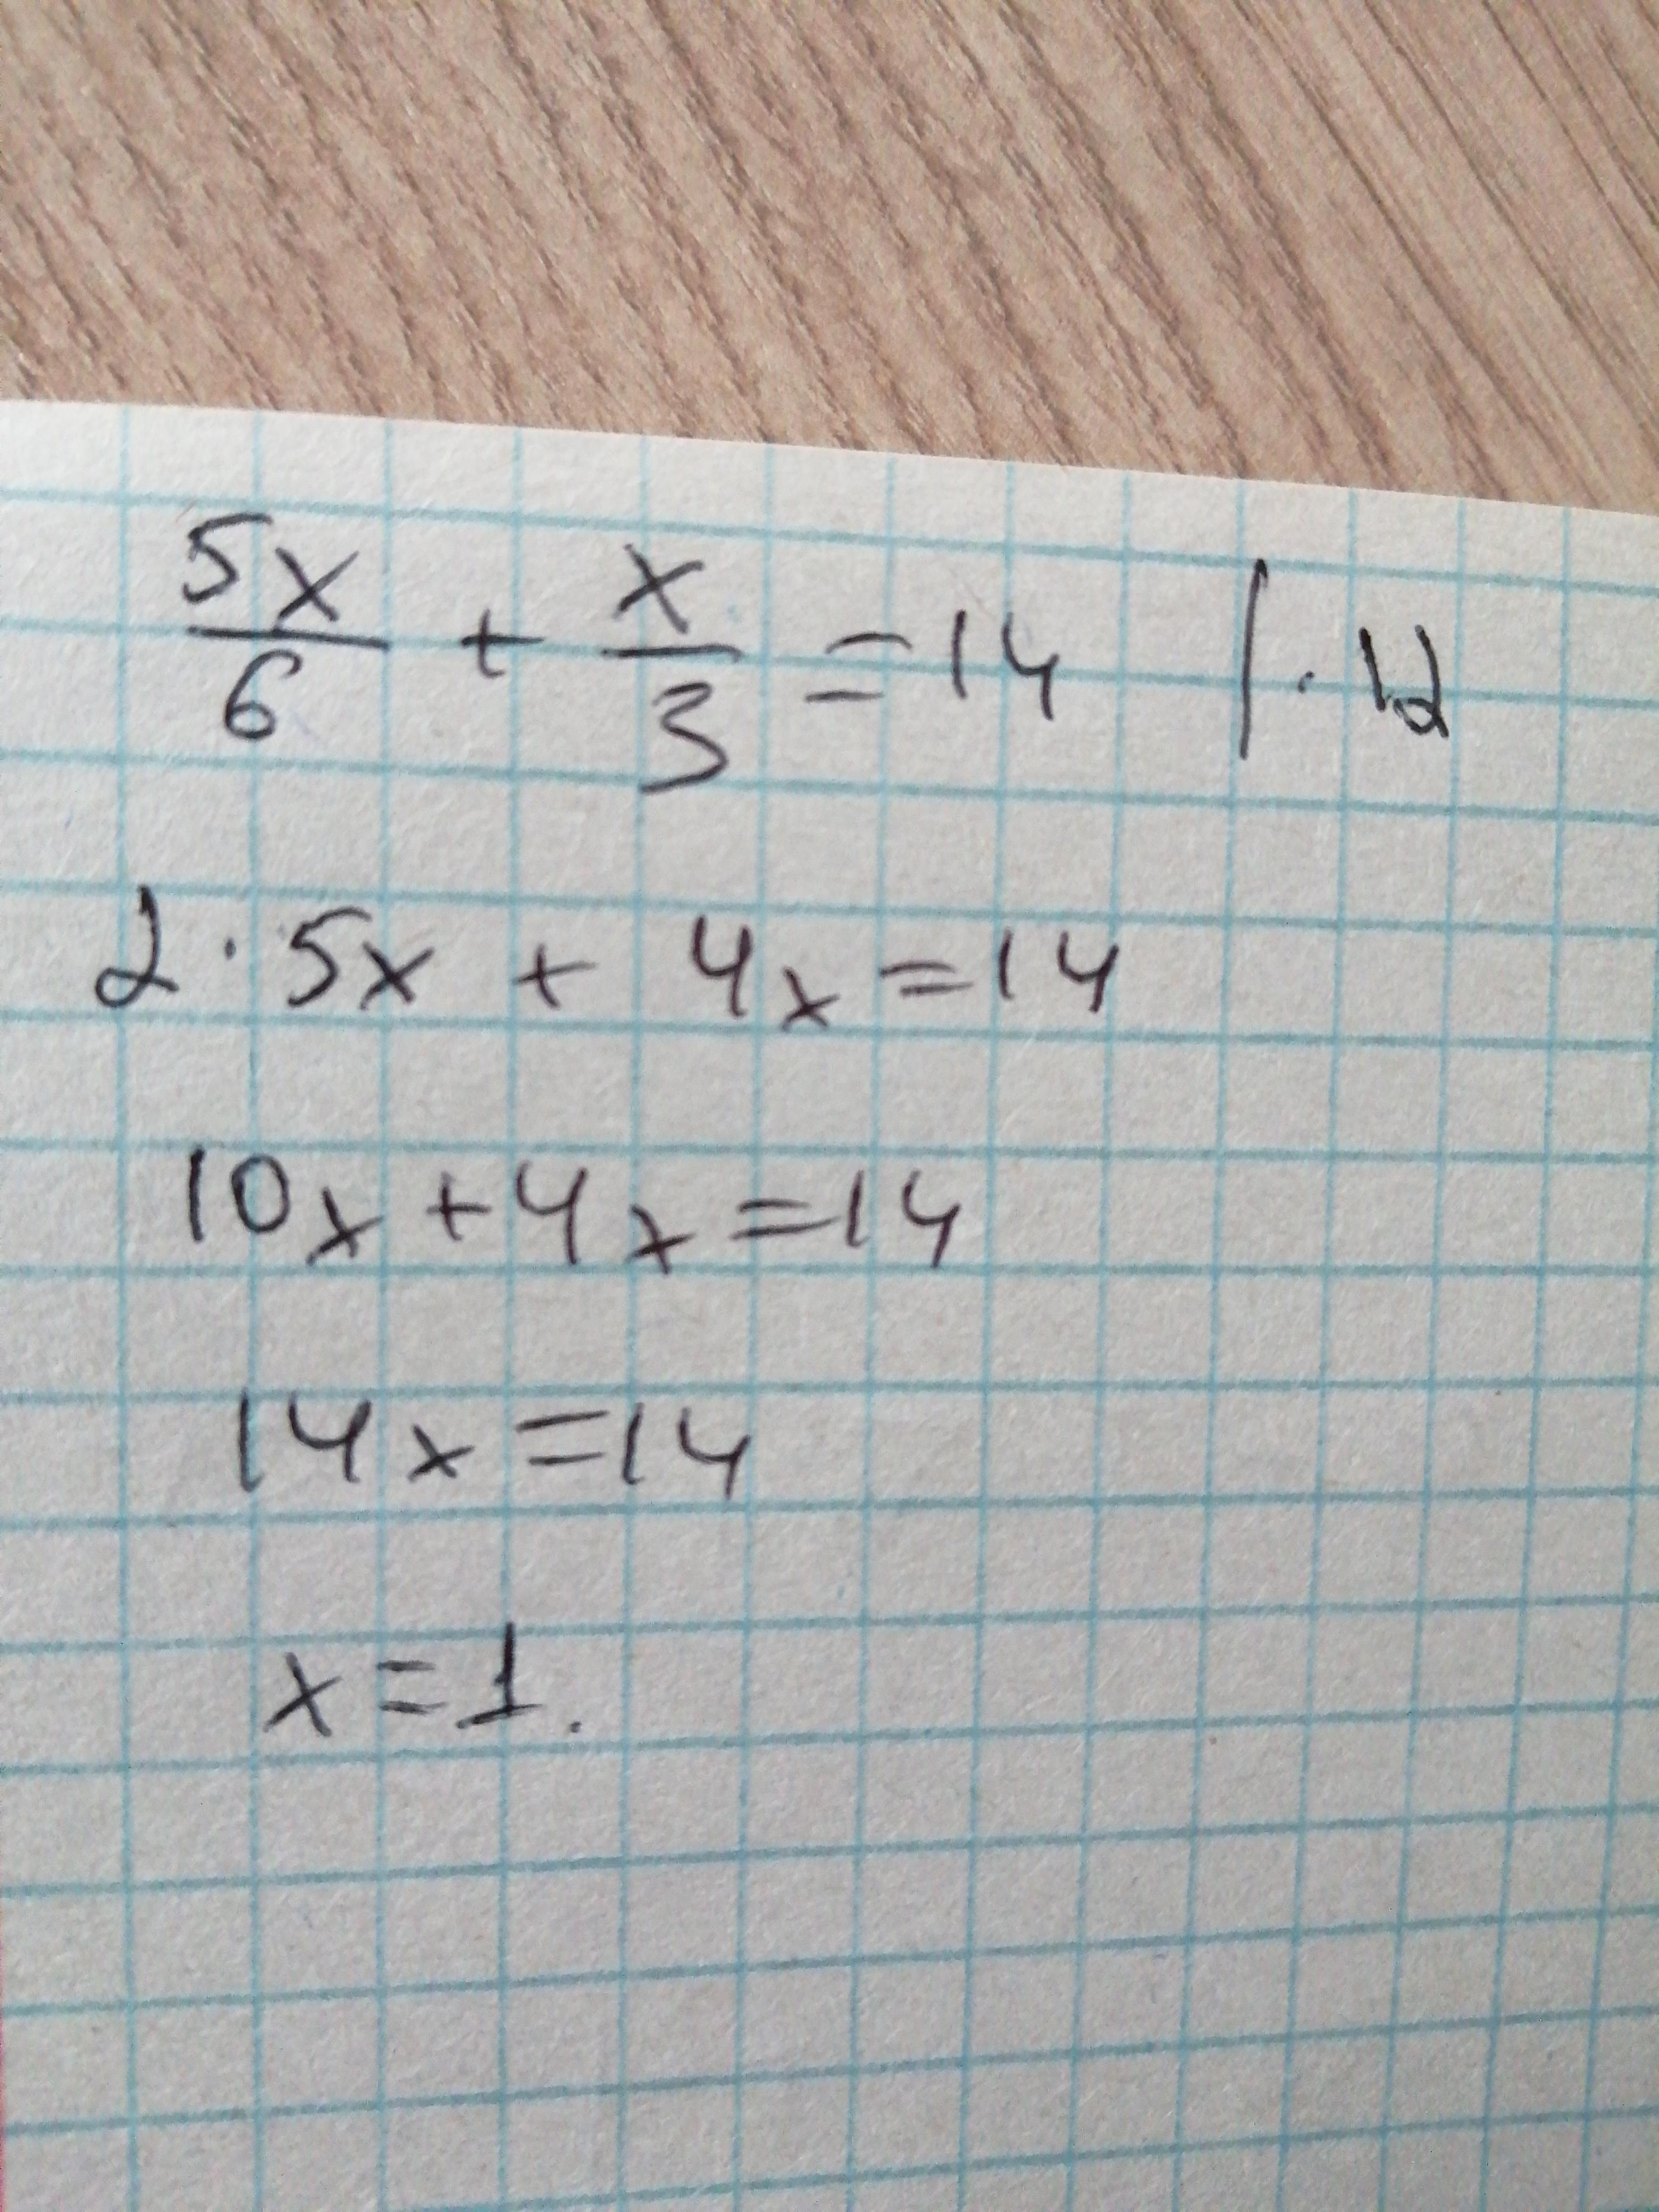 5x/6 + x/3 = 14 | · 12
2 · 5x + 4x = 14
10x + 4x = 14
14x = 14
x = 1.